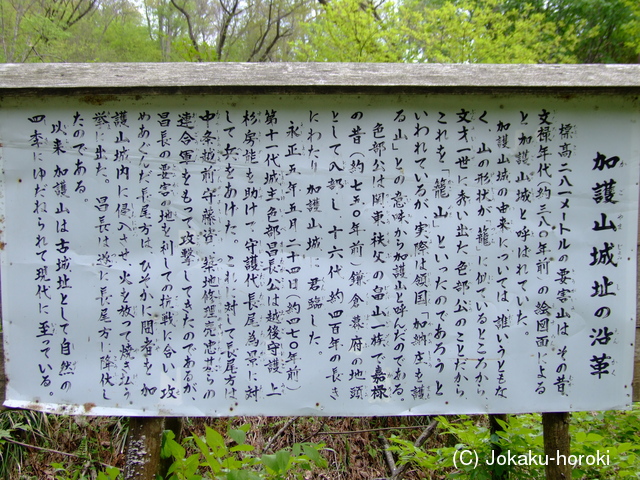 加護山城址の沿革
標高二八一メートルの要害山は、その昔、
文禄年代(約三八〇年前)の絵図面による
と、加護山城と呼ばれていた。
加護山城の由来については、誰いうともな
く、山の形状が籠に似ているところから、
文才一世に秀い出た色部公のことだから、
これを「籠山」といったのであろうと、
いわれているが、実際は領国「加納庄を護
る山」との意味から加護山と呼んだのである。
色部公は関東、秩父の畠山一族で嘉禄
の昔(約七五〇年前)鎌倉幕府の地頭
として入部し、十六代、約四百年の長き
にわたり、加護山城へ君臨した。
永正五年五月二十四日(約四七〇年前)
第十一代城主色部昌長公は越後守護、上
杉房能を助けて、守護代長尾為景に対
して兵をあげた。これに対して長尾方は、
中条越前守藤資、築地修理亮忠らの
連合軍をもって攻撃してきたのであるが
昌長の要害の地を利しての抗戦に合い、攻
めあぐんだ長尾方は、ひそかに間者を、加
護山城内に侵入させ、火を放って焼き払う
挙に出た。昌長は遂に長尾方に降伏し
たのである。
以来、加護山は古城址として自然の
四季にゆだねられて現代に至っている。
(C)Jokaku-horoki